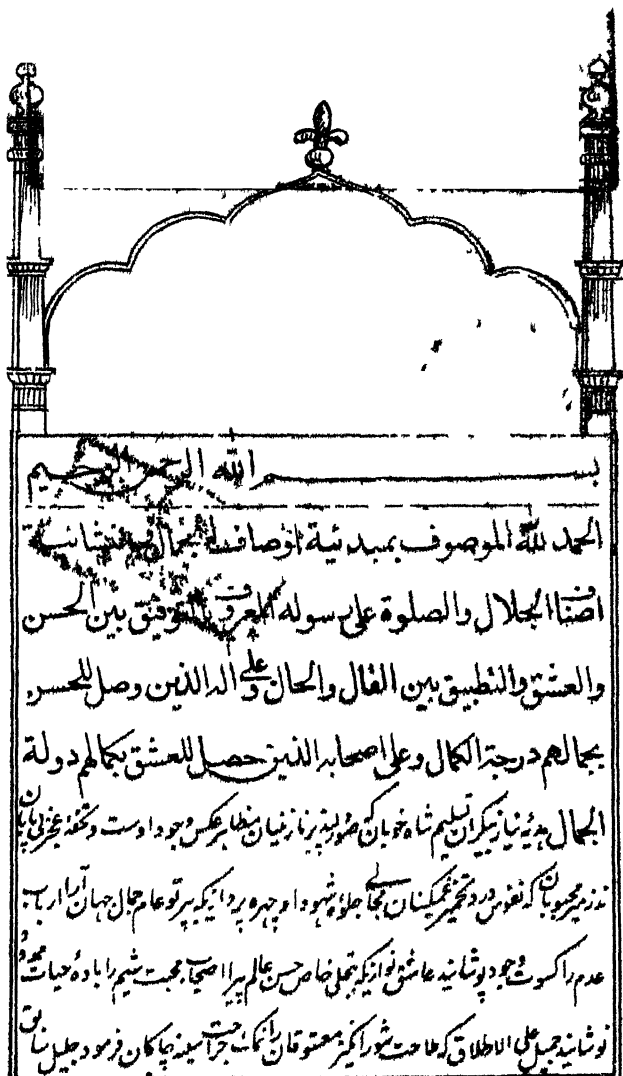 بســـــــم الله الرحمن الرحيم
الحمد لله الموصوف بمبدئية اوصاف الجمال
اصناف الجلال والصلوة على رسوله المعروف بالتوفيق بين الحسن
والعشق والتطبيق بين القال والحال وعلى آله الذين وصل للحسن
بجمالهم درجة الكمال وعلى اصحابه الذين حصل للعشق بكمالهم دولة
الجمال هدیهٔ نیاز بیکران تسلیم شاه خوبان که صور دلپذیر نازنینان مظاهر عکس وجود اوست و تحفهٔ عجز بی پایان
نذر میر محبوبان که نفوس درد تخمیر غمگینان جلوهٔ شهود او چهره پردازیکه بپرتو عام جمال جهان آرا ارباب
عدم را کسوت وجود پوشانید عاشق نوازیکه بتجلی خاص حسن عالم پیرا اصحاب محبت شیم را بادهٔ حیات
نوشانید جمیل علی الاطلاق که ملاحت شورانگیز معشوقان را نمک جراحت سینه چاکان فرمود جلیل